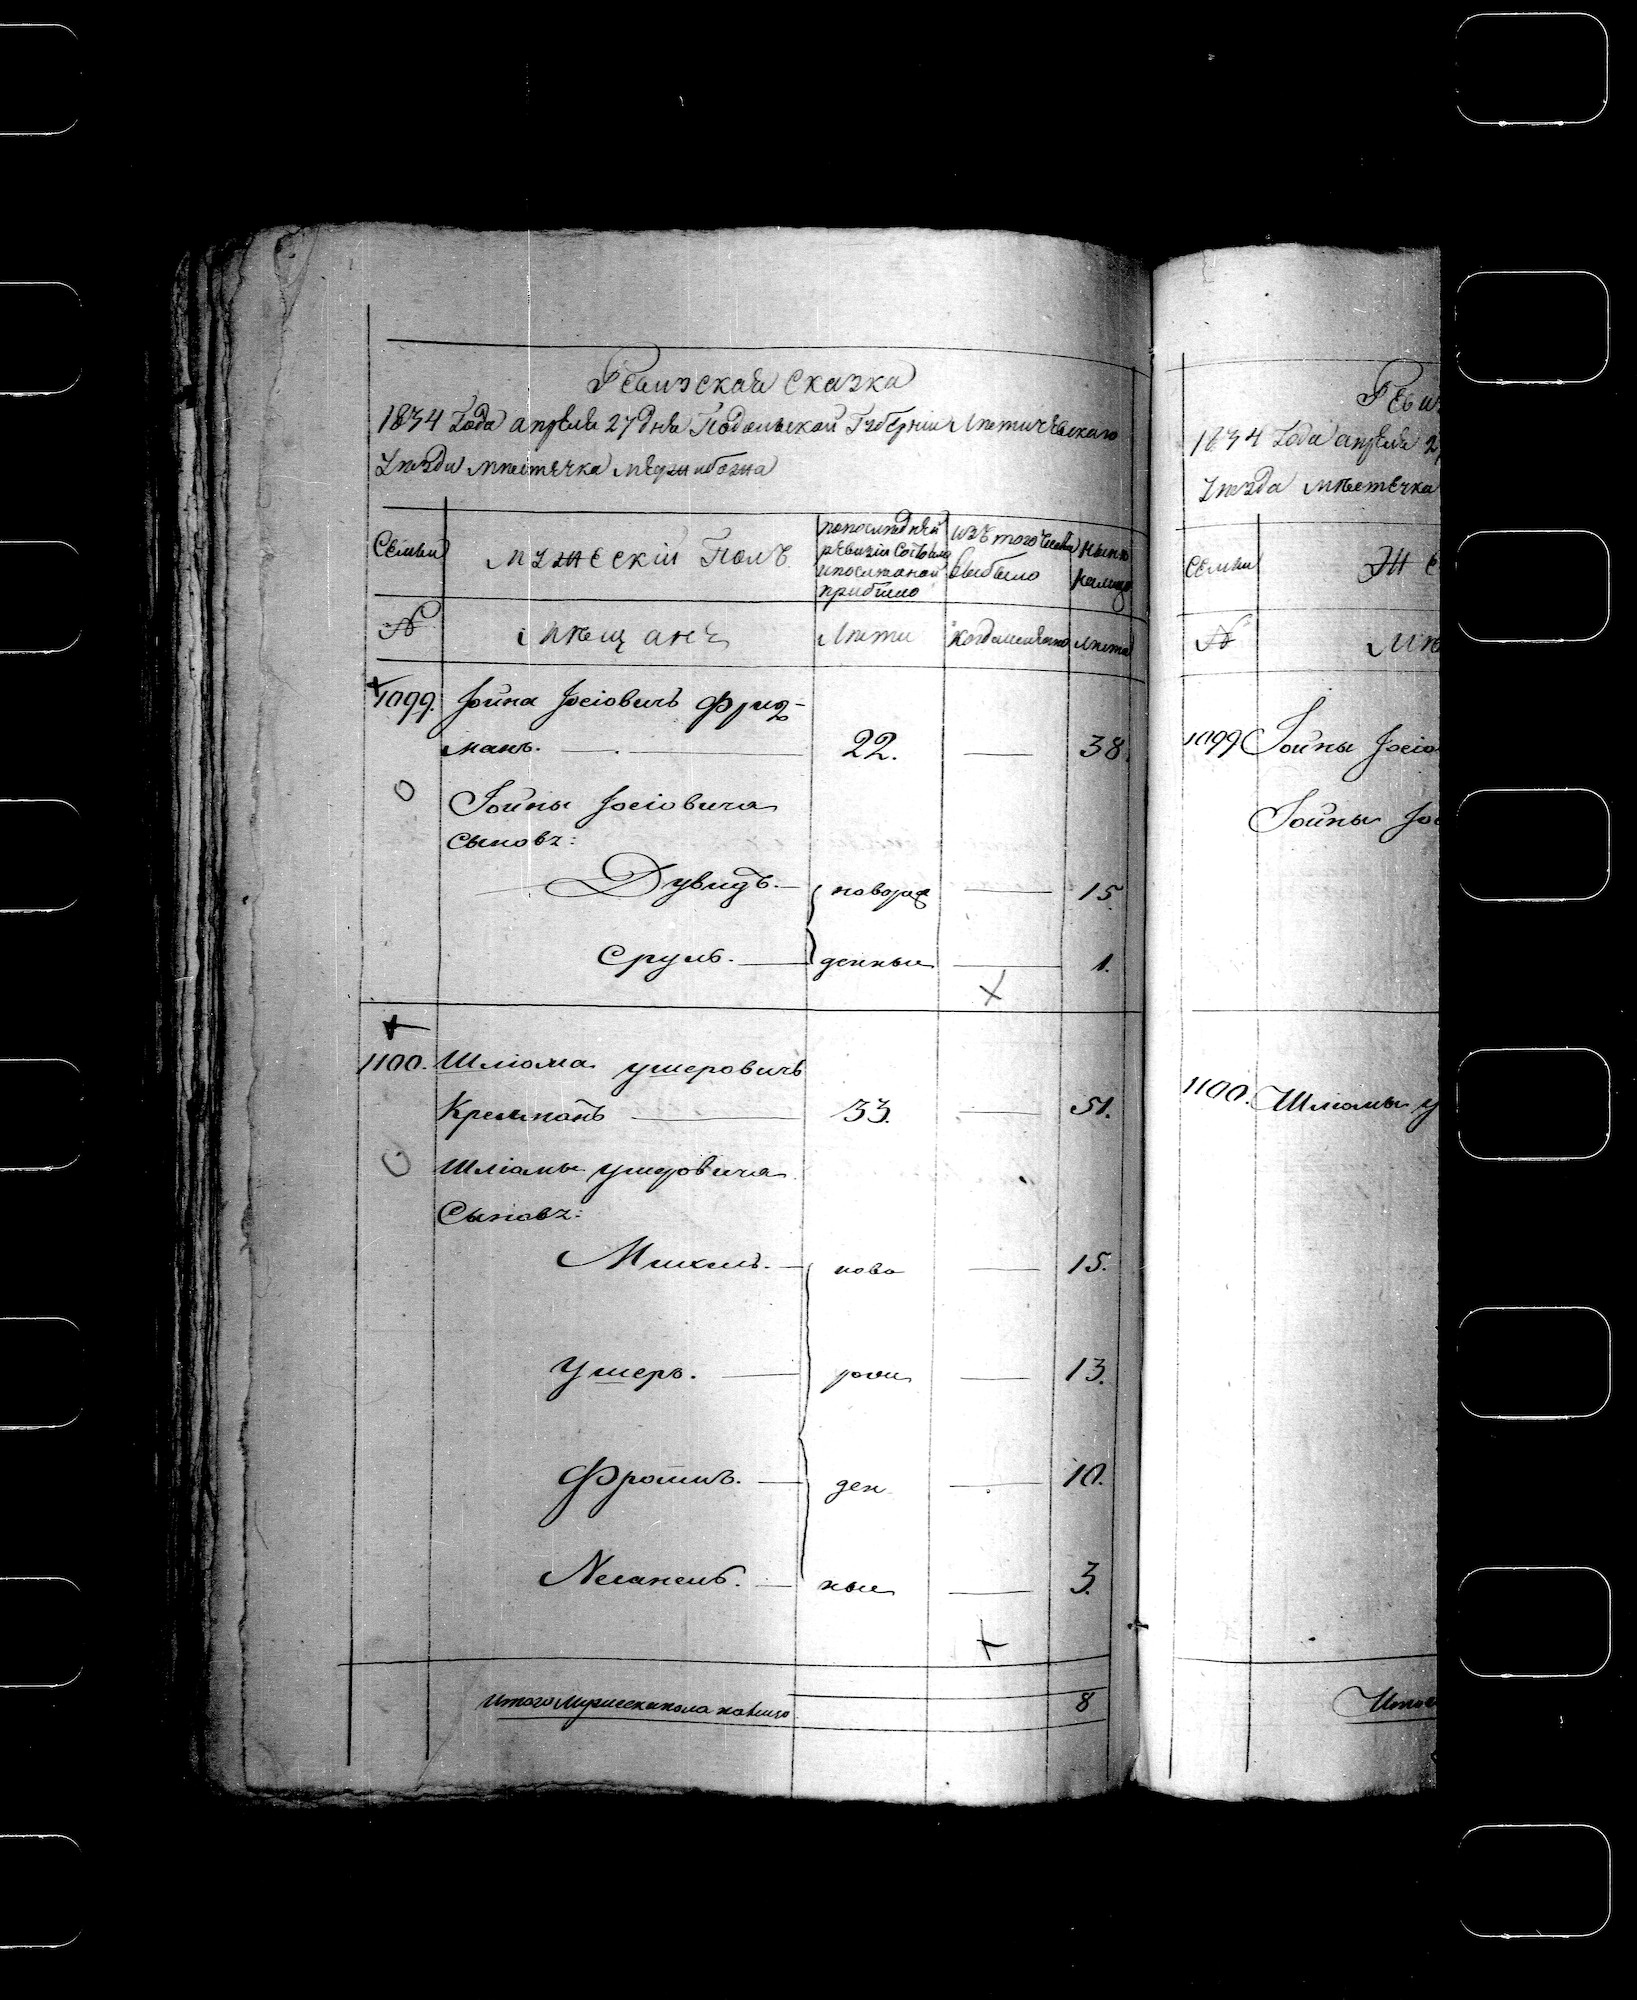 Ревизская сказка
1834 Года апреля 27 дня Подольской Губернии Летичевскаго
Уезда местечка Меджибожа
Семьи
Мужескій Полъ
попоследней
ревизіи состояло
ипослеоной
прибыло
изъ того числа
выбыло
ныне
налицо
№
Мещанъ
Лета
когда именно
Лета
1099. Іойна Іосіовичъ Фрид-
манъ. 22. 38.
Іойны Іосіовича
сыновъ:
Дувидъ. новорож 15.
Сруль. денные 1.
1100. Шліома Ушеровичъ
33. 51.
Шліомы Ушеровича
Сыновъ:
Михель. ново 15.
Ушеръ. рож 13.
Фроимъ. ден 10.
Несанель. ные 3.
Итого мужеска пола налицо 8
Реви
1834 Года апреля 2
Уезда местечка
Семьи
Же
№
Ме
1099 Іойны Іосіо
Іойны Іос
1100. Шліомы У
Итого